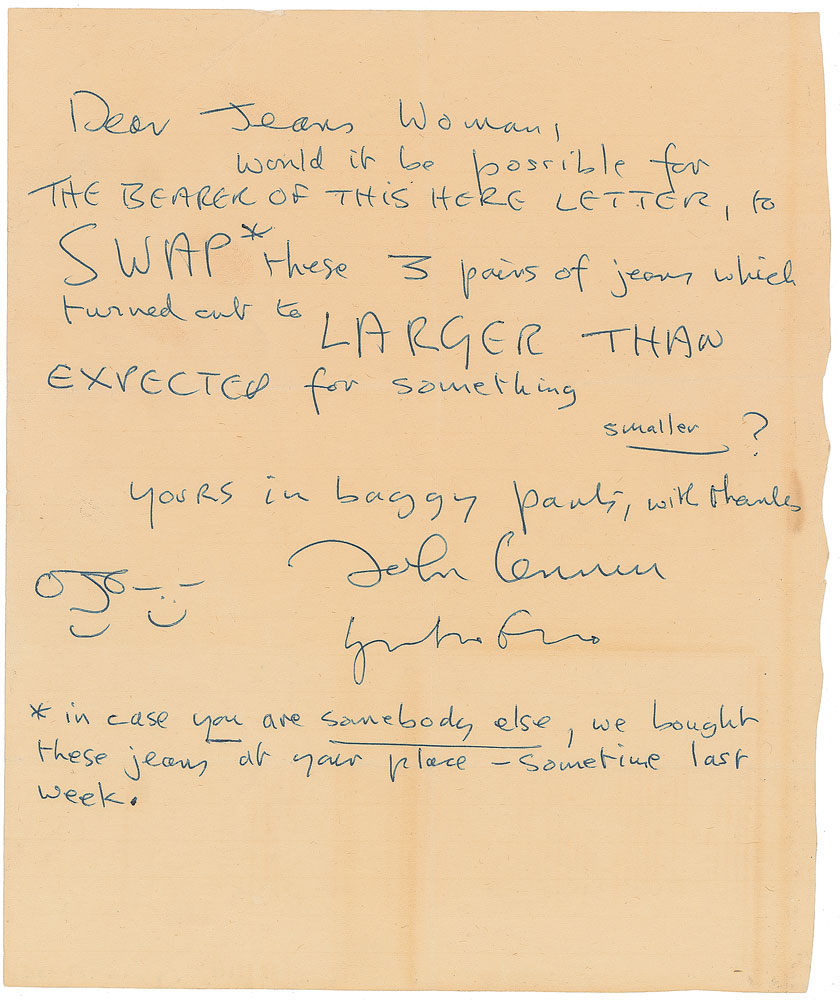 Dear Jeans Woman,
would it be possible for
THE BEARER OF THIS HERE LETTER, to
SWAP* these 3 pairs of jeans which
turned out to LARGER THAN
EXPECTED for something
smaller ?
yours in baggy pants, with thanks
John Lennon
* in case you are somebody else, we bought
these jeans at your place – sometime last
week.